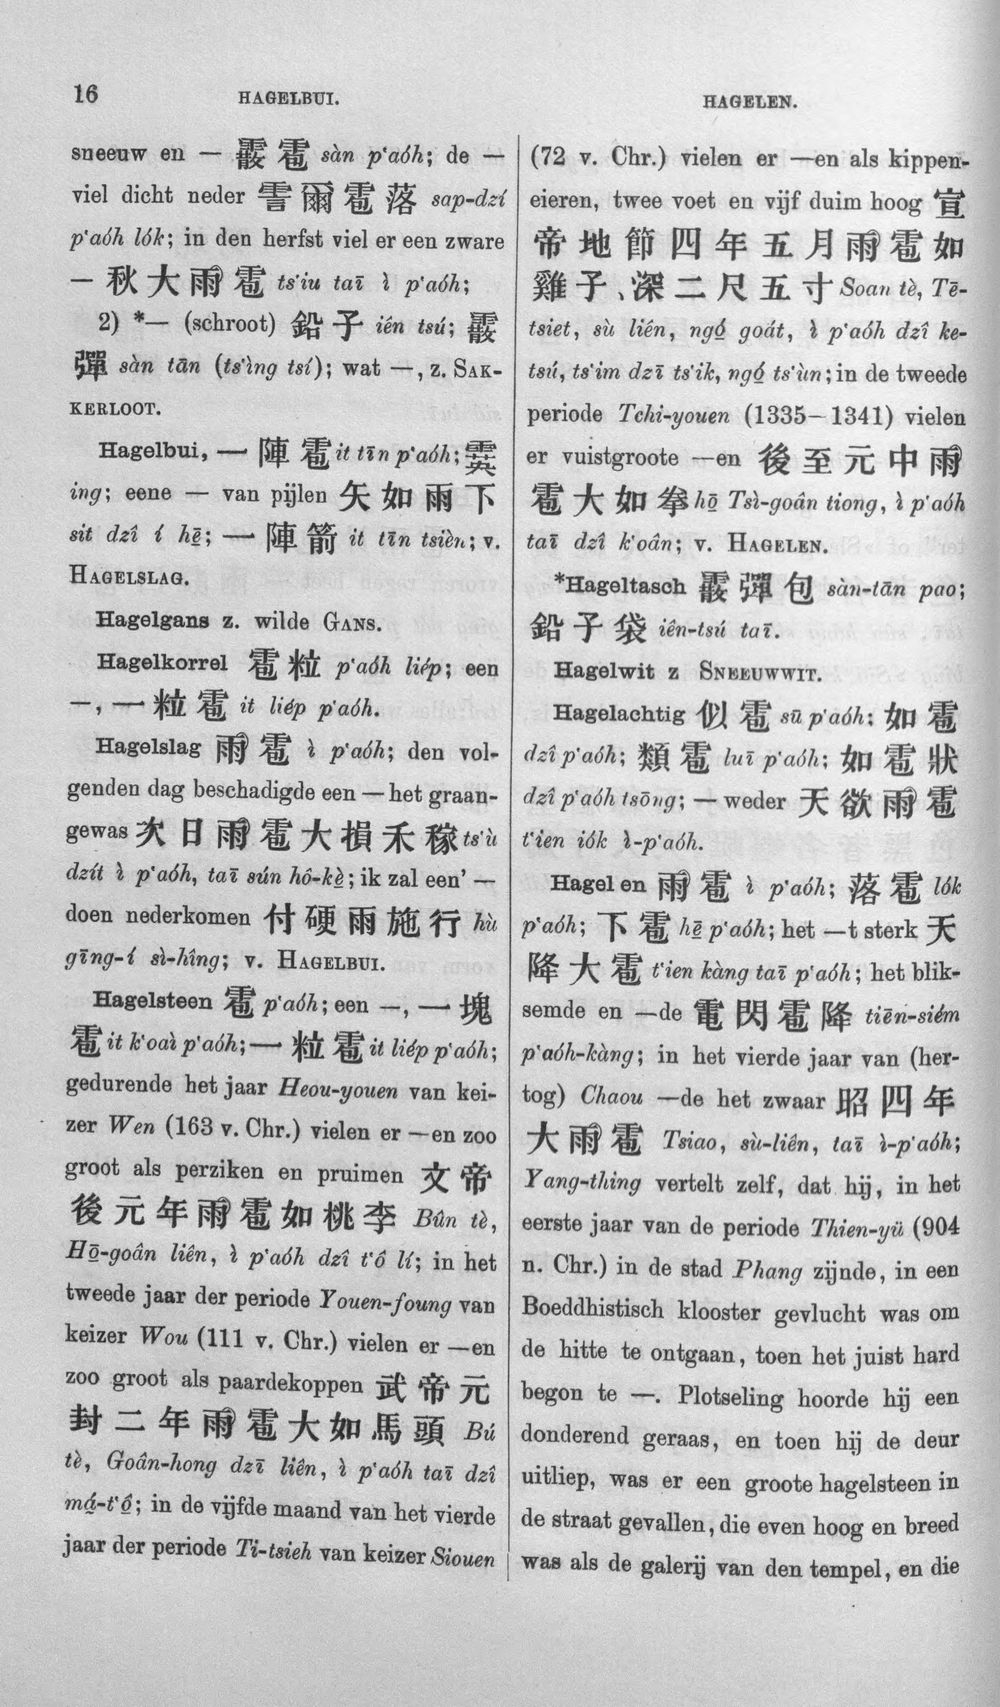 16
HAGELBUI.
HAGELEN.
sneeuw en — 霰雹 sàn p‘aóh; de —
viel dicht neder 霅爾雹落 sap-dzí
p‘aóh lók; in den herfst viel er een zware
— 秋大雨雹 ts‘iu taī ì p‘aóh;
2) *— (schroot) 鉛子 iên tsú; 霰
彈 sàn tān (ts‘ìng tsí); wat —, z. SAK-
KERLOOT.
Hagelbui, 一陣雹 it tīn p‘aóh; 霙
ing; eene — van pijlen 矢如雨下
sit dzî í hē; 一陣箭 it tīn tsièn; v.
HAGELSLAG.
Hagelgans z. wilde GANS.
Hagelkorrel 雹粒 p‘aóh liép; een
—, 一粒雹 it liép p‘aóh.
Hagelslag 雨雹 ì p‘aóh; den vol-
genden dag beschadigde een — het graan-
gewas 次日雨雹大損禾稼 ts‘ù
dzít ì p‘aóh, taī sún hô-kè; ik zal een’ —
doen nederkomen 付硬雨施行 hù
gīng-í sì-hîng; v. HAGELBUI.
Hagelsteen 雹 p‘aóh; een —, 一塊
雹 it k‘oaì p‘aóh; 一粒雹 it liép p‘aóh;
gedurende het jaar Heou-youen van kei-
zer Wen (163 v. Chr.) vielen er —en zoo
groot als perziken en pruimen 文帝
後元年雨雹如桃李 Bûn tè,
Hō-goân liên, ì p‘aóh dzî t‘ô lí; in het
tweede jaar der periode Youen-foung van
keizer Wou (111 v. Chr.) vielen er —en
zoo groot als paardekoppen 武帝元
封二年雨雹大如馬頭 Bú
tè, Goân-hong dzī liên, ì p‘aóh taī dzî
má-t‘ô; in de vijfde maand van het vierde
jaar der periode Ti-tsieh van keizer Siouen
(72 v. Chr.) vielen er —en als kippen-
eieren, twee voet en vijf duim hoog 宣
帝地節四年五月雨雹如
雞子、深二尺五寸 Soan tè, Tē-
tsiet, sù liên, ngó goát, ì p‘aóh dzî ke-
tsú, ts‘im dzī ts‘ik, ngó ts‘ùn; in de tweede
periode Tchi-youen (1335—1341) vielen
er vuistgroote —en 後至元中雨
雹大如拳 hō Tsì-goân tiong, ì p‘aóh
taī dzî k‘oân; v. HAGELEN.
*Hageltasch 霰彈包 sàn-tān pao;
鉛子袋 iên-tsú taī.
Hagelwit z SNEEUWWIT.
Hagelachtig 似雹 sū p‘aóh; 如雹
dzî p‘aóh; 類雹 luī p‘aóh; 如雹狀
dzî p‘aóh tsōng; — weder 天欲雨雹
t‘ien iók ì-p‘aóh.
Hagelen 雨雹 ì p‘aóh; 落雹 lók
p‘aóh; 下雹 hē p‘aóh; het —t sterk 天
降大雹 t‘ien kàng taī p‘aóh; het blik-
semde en —de 電閃雹降 tiēn-siém
p‘aóh-kàng; in het vierde jaar van (her-
tog) Chaou —de het zwaar 昭四年
大雨雹 Tsiao, sù-liên, taī ì-p‘aóh;
Yang-thing vertelt zelf, dat hij, in het
eerste jaar van de periode Thien-yü (904
n. Chr.) in de stad Phang zijnde, in een
Boeddhistisch klooster gevlucht was om
de hitte te ontgaan, toen het juist hard
begon te —. Plotseling hoorde hij een
donderend geraas, en toen hij de deur
uitliep, was er een groote hagelsteen in
de straat gevallen, die even hoog en breed
was als de galerij van den tempel, en die